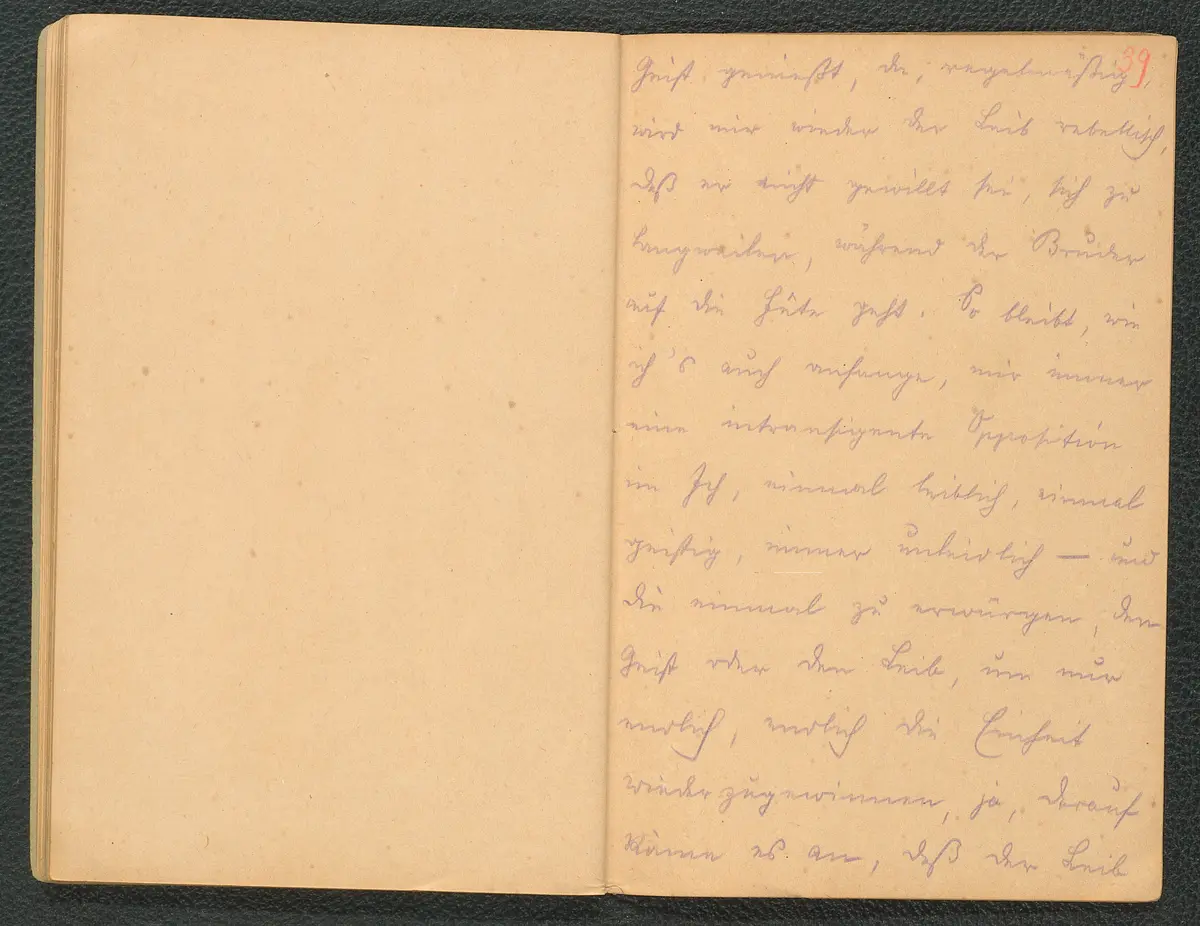 39
Geist genießt, da, regelmäßig,
wird mir wieder der Leib rebellisch,
daß er nicht gewillt sei, sich zu
langweilen, während der Bruder
auf die Hüte geht. So bleibt, wie
ich's auch anfange, mir immer
eine intransigente Opposition
im Ich, einmal leiblich, einmal
geistig, immer unleidlich — und
die einmal zu erwürgen, den
Geist oder den Leib, um nur
endlich, endlich die Einheit
wiederzugewinnen, ja, darauf
käme es an, daß der Leib